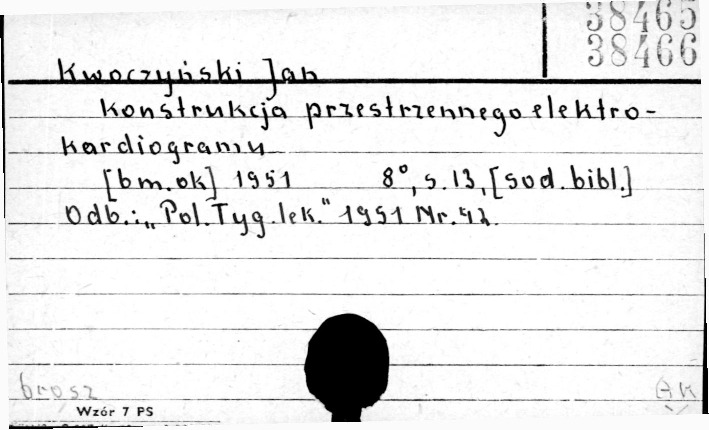 38465
38466
Kwoczyński Jan
Konstrukcja przestrzennego elektro-
kardiogramu
[bm.ok] 1951 8°, s.13, [sod.bibl.]
Odb.: „Pol.Tyg.lek." 1951 Nr.
brosz
AK
Wzór 7 PS